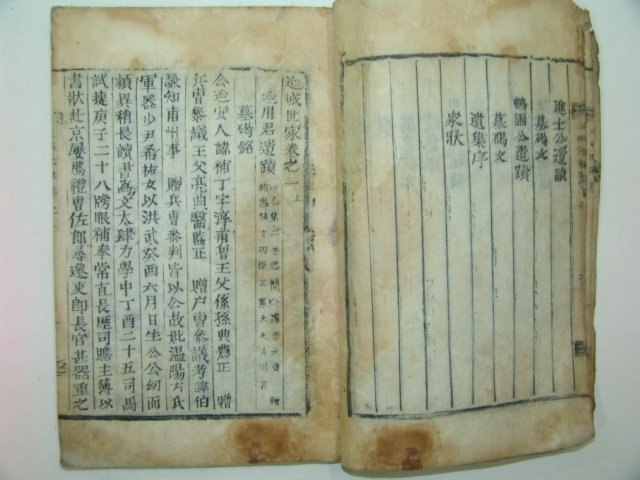 進士公遺蹟
墓碣文
鶴圃公遺蹟
墓碣文
遺集序
家狀
延城世家卷之一 上
延川君遺蹟
墓碣銘
公延安人諱補丁字淳甫曾王父係孫典農正 贈
兵曹參議王父亮典醫監正 贈戶曹參議考諱伯
謙知甫州事 贈兵曹參判皆以公故妣溫陽方氏
軍器少尹番佑女以洪武癸酉六月日生公公幼而
穎異稍長讀書為文大肆力學中丁酉二十五司馬
試捷庚子二十八牓眼補奉常直長歷司贍主簿以
書狀赴京屢薦禮曹佐郎尋遷吏郎長官甚器重之